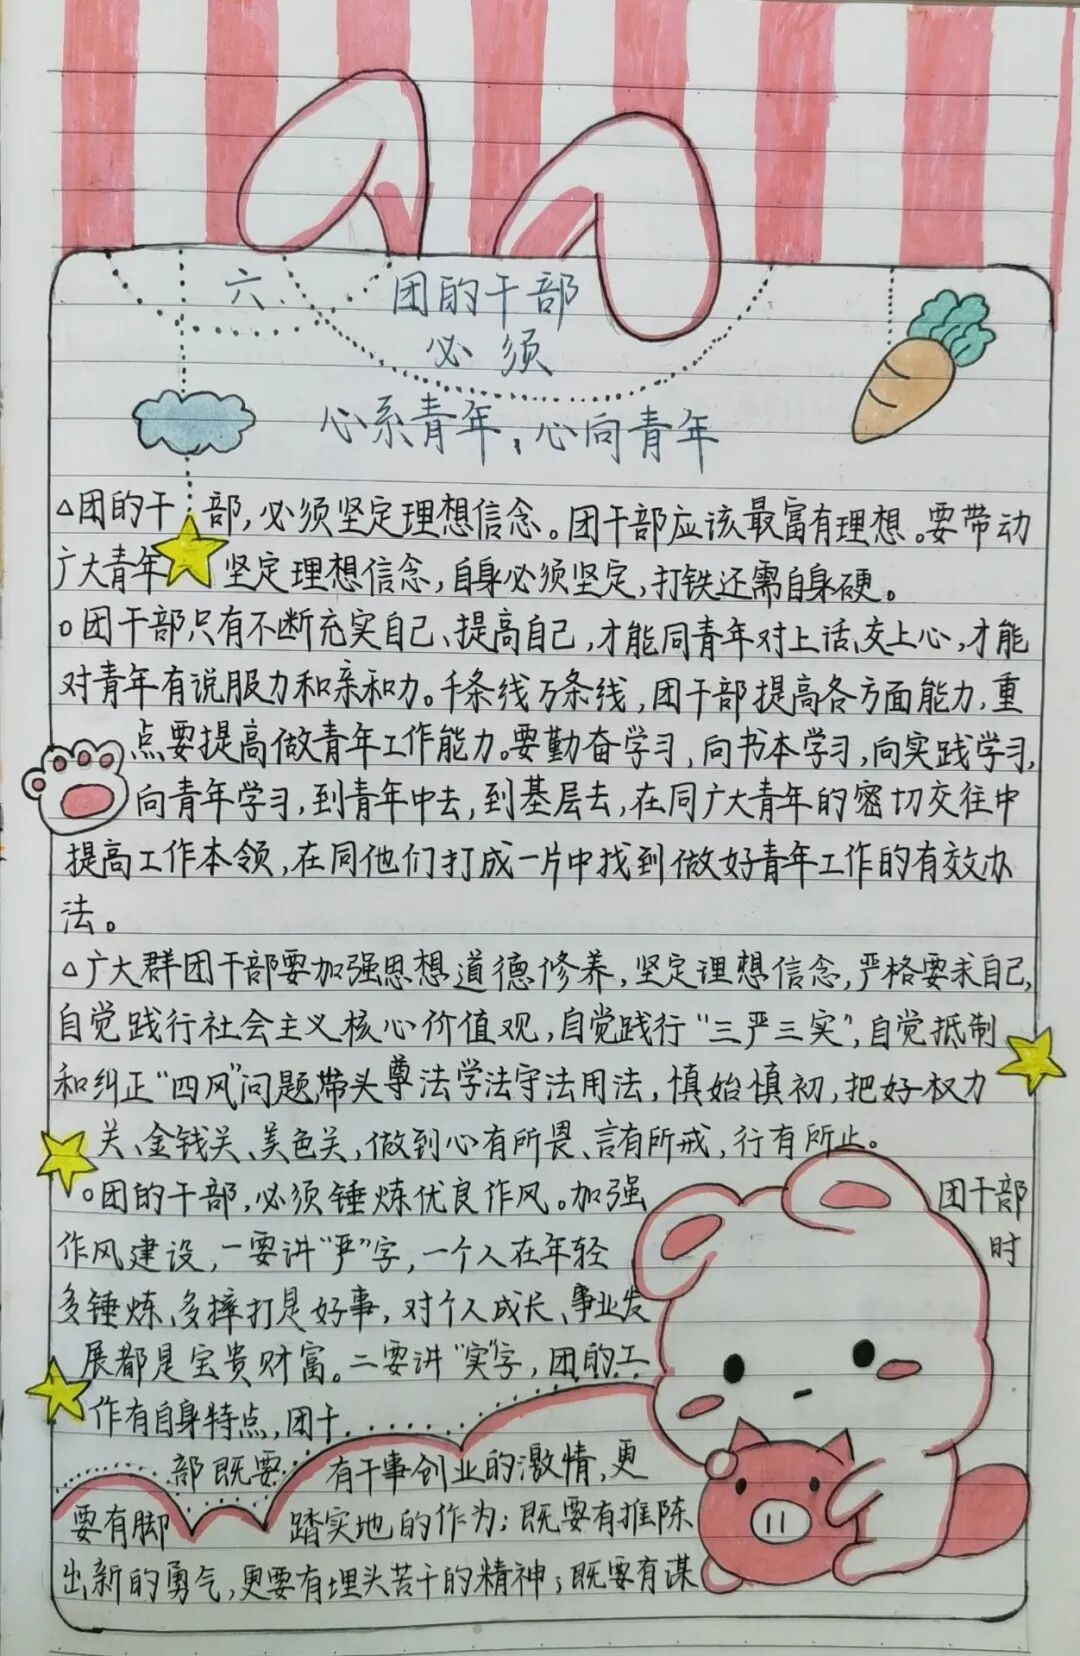 六、 团的干部
必须
心系青年，心向青年
△团的干部，必须坚定理想信念。团干部应该最富有理想。要带动
广大青年坚定理想信念，自身必须坚定，打铁还需自身硬。
○团干部只有不断充实自己、提高自己，才能同青年对上话、交上心，才能
对青年有说服力和亲和力。千条线万条线，团干部提高各方面能力，重
点要提高做青年工作能力。要勤奋学习，向书本学习，向实践学习，
向青年学习，到青年中去，到基层去，在同广大青年的密切交往中
提高工作本领，在同他们打成一片中找到做好青年工作的有效办
法。
△广大群团干部要加强思想道德修养，坚定理想信念，严格要求自己，
自觉践行社会主义核心价值观，自觉践行“三严三实”，自觉抵制
和纠正“四风”问题，带头尊法学法守法用法，慎始慎初，把好权力
关、金钱关、美色关，做到心有所畏、言有所戒，行有所止。
○团的干部，必须锤炼优良作风。加强 团干部
作风建设，一要讲“严”字，一个人在年轻 时
多锤炼、多摔打是好事，对个人成长、事业发
展都是宝贵财富。二要讲“实”字，团的工
作有自身特点，团干
部既要 有干事创业的激情，更
要有脚 踏实地的作为；既要有推陈
出新的勇气，更要有埋头苦干的精神；既要有谋